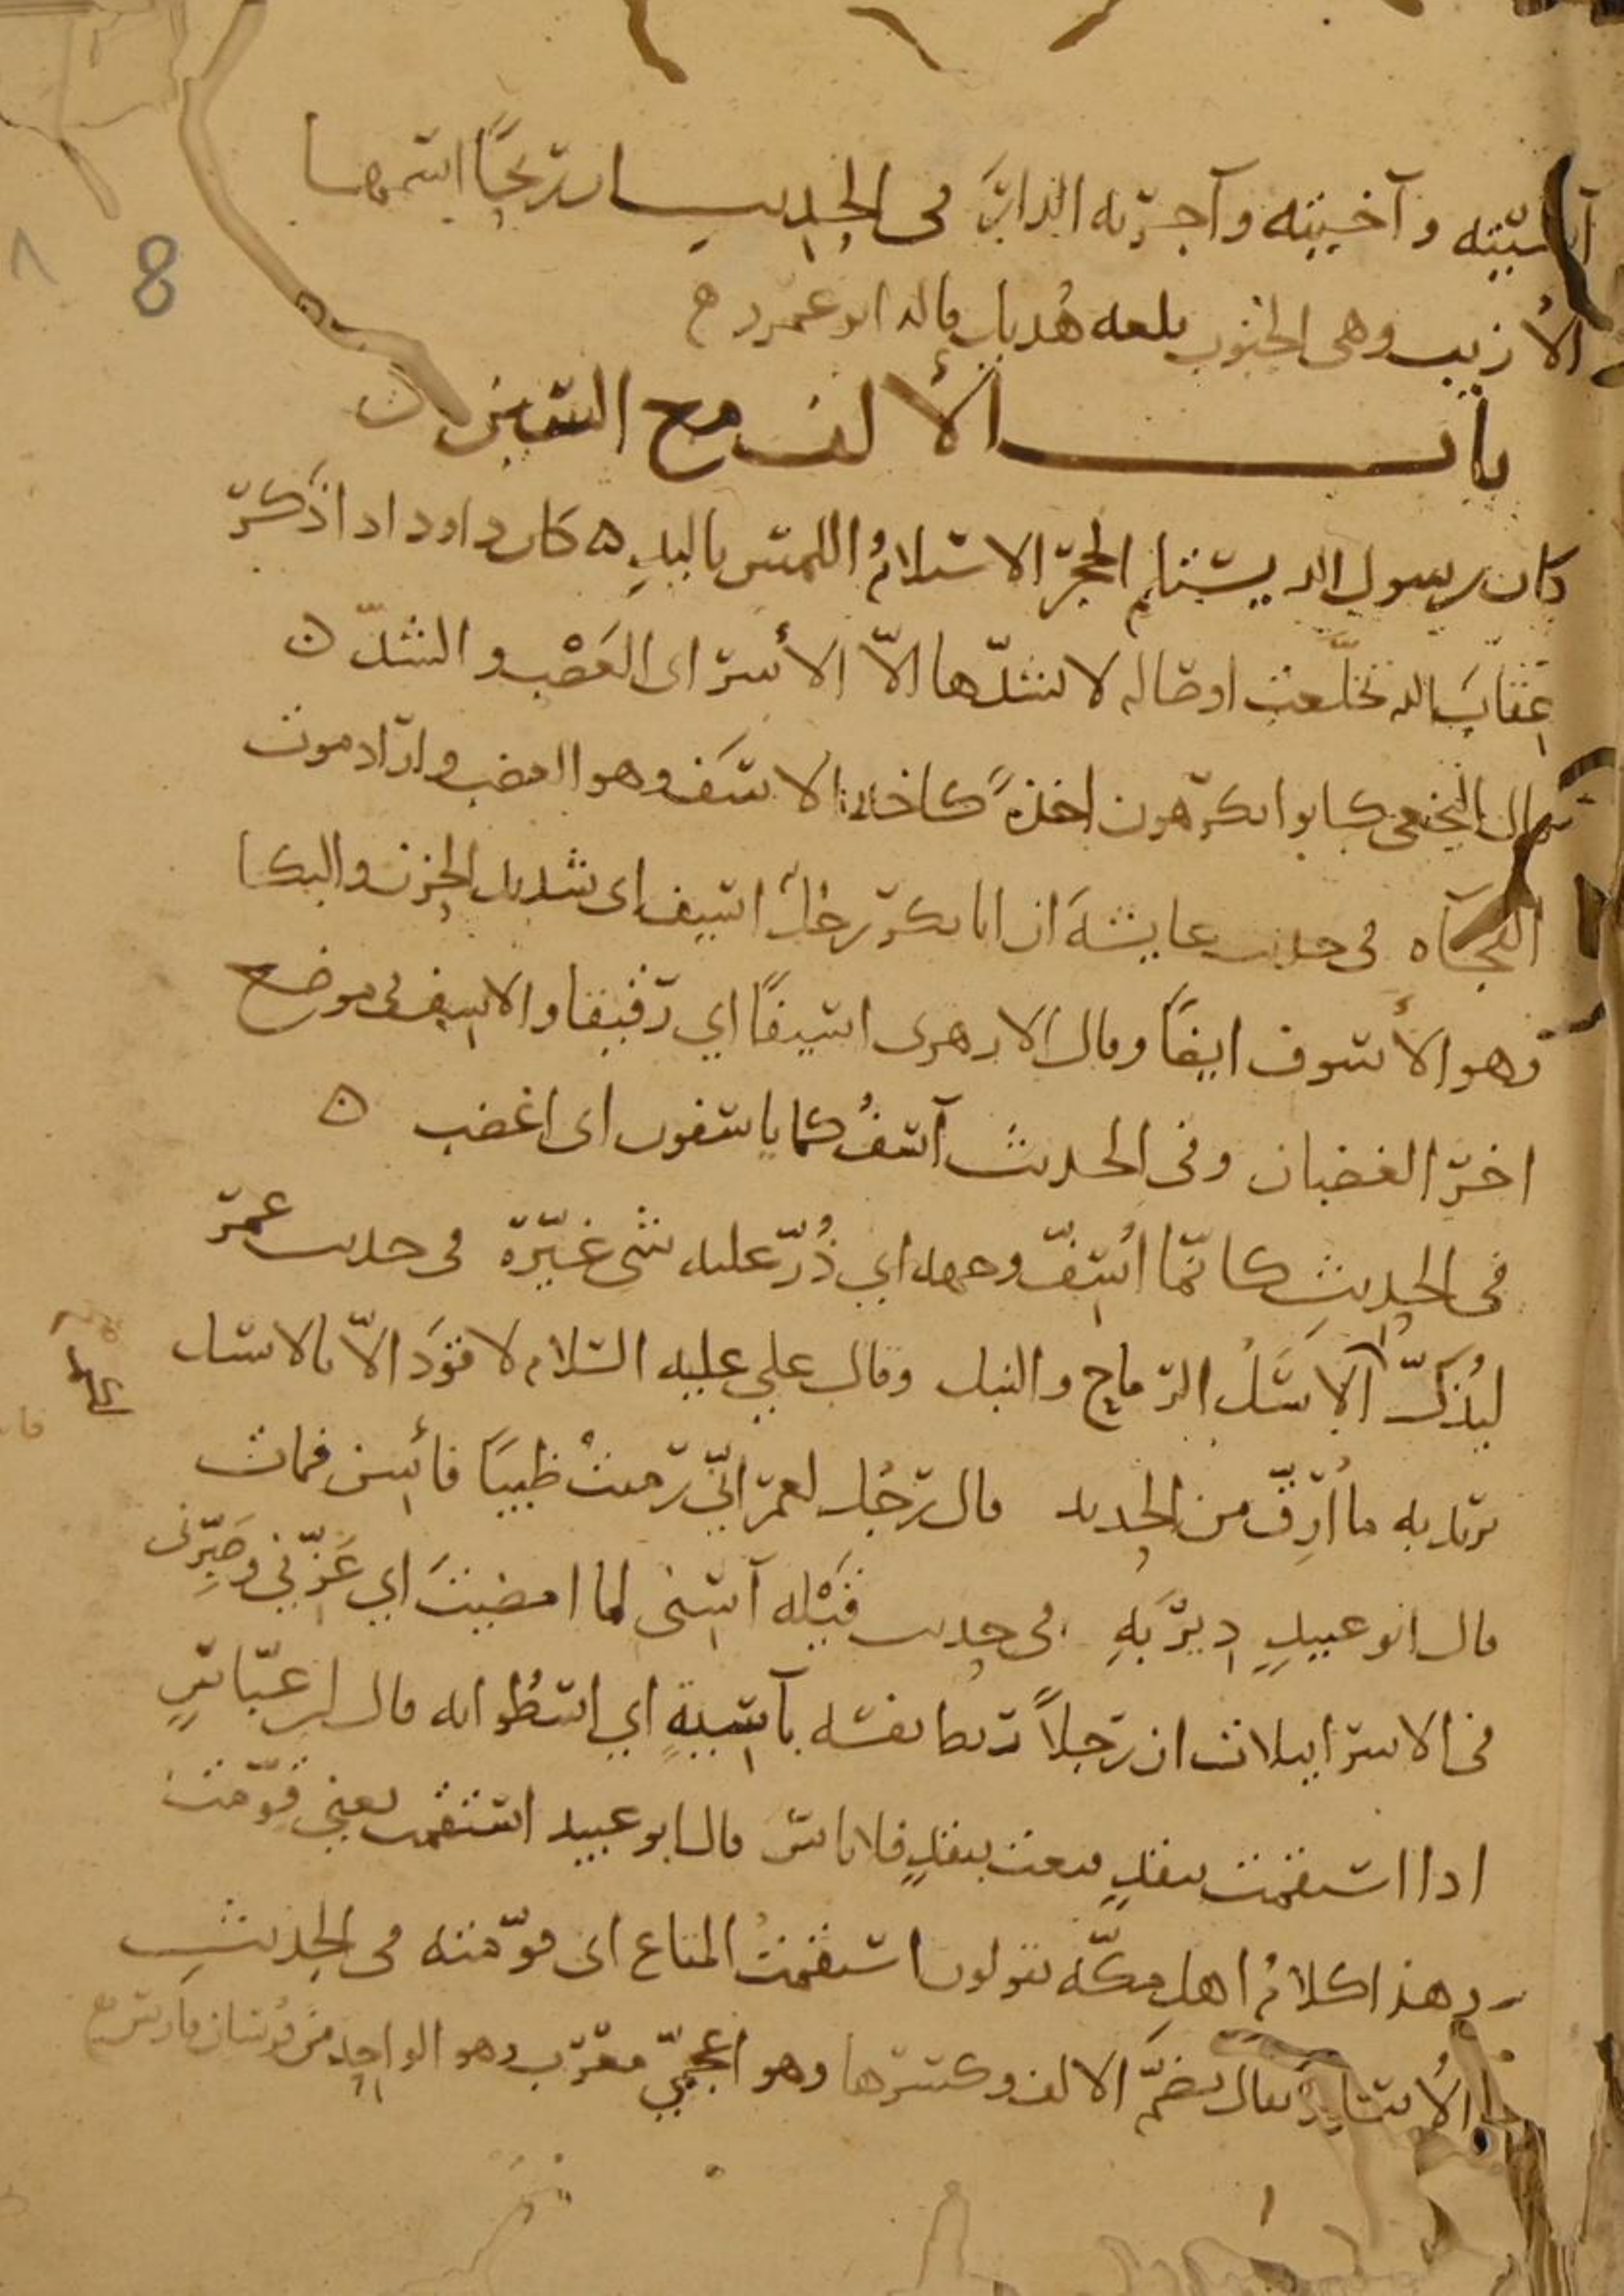 وآخيته وآجرته الدابة في الحديث ريح اسمها
الأزيب وهي الجنوب بلغة هذيل قاله ابو عمر ح
باب الألف مع السين ن
كان رسول الله يستلم الحجر الاستلام اللمس باليد ه كان داود اذا ذكر
عقاب الله تخلعت اوصاله لا يشدها الا الأسر اى العصب والشد ن
قال النخعي كانوا يكرهون اخذة كاخذة الاسف وهو الغضب واراد موت
الفجآة في حديث عايشة ان ابا بكر رجل اسيف اى شديد الحزن والبكا
وهو الأسوف ايضا وقال الازهرى اسيفا اي رقيقا والاسيف في موضع
اخر الغضبان وفى الحديث آسف كما ياسفون اى اغضب ن
في الحديث كانما اسف وجهه اي ذر عليه شي غيره في حديث عمر
ليذك الاسل الرماح والنبل وقال علي عليه السلام لا قود الا بالاسل
يريد به ما ارق من الحديد قال رجل لعمر اني رميت ظبيا فأسن فمات
قال ابو عبيد دير به في حديث قيلة آسنى لما امضيت اي عزني وصبرنى
في الاسرايلات ان رجلا ربط نفسه بآسية اي اسطوانه قال ابن عباس
اذا استقمت بنقد فبعت بنقد فلا باس قال ابو عبيد استقمت يعني قومت
وهذا كلام اهل مكة يقولون استقمت المتاع اى قومته في الحديث
الأسابذ يقال بضم الالف وكسرها وهو اعجمي معرب وهو الواحد من فرسان فارس ح
8
٨